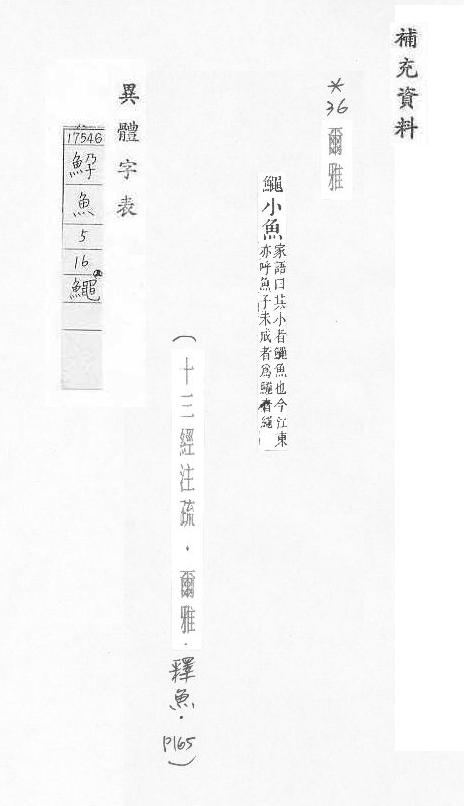 補充資料
*
36
爾雅
鱦小魚
家語曰其小者鱦魚也今江東
亦呼魚子未成者為鱦音繩
（十三經注疏．爾雅．釋魚．P165）
異體字表
17546
魚
5
16
鱦